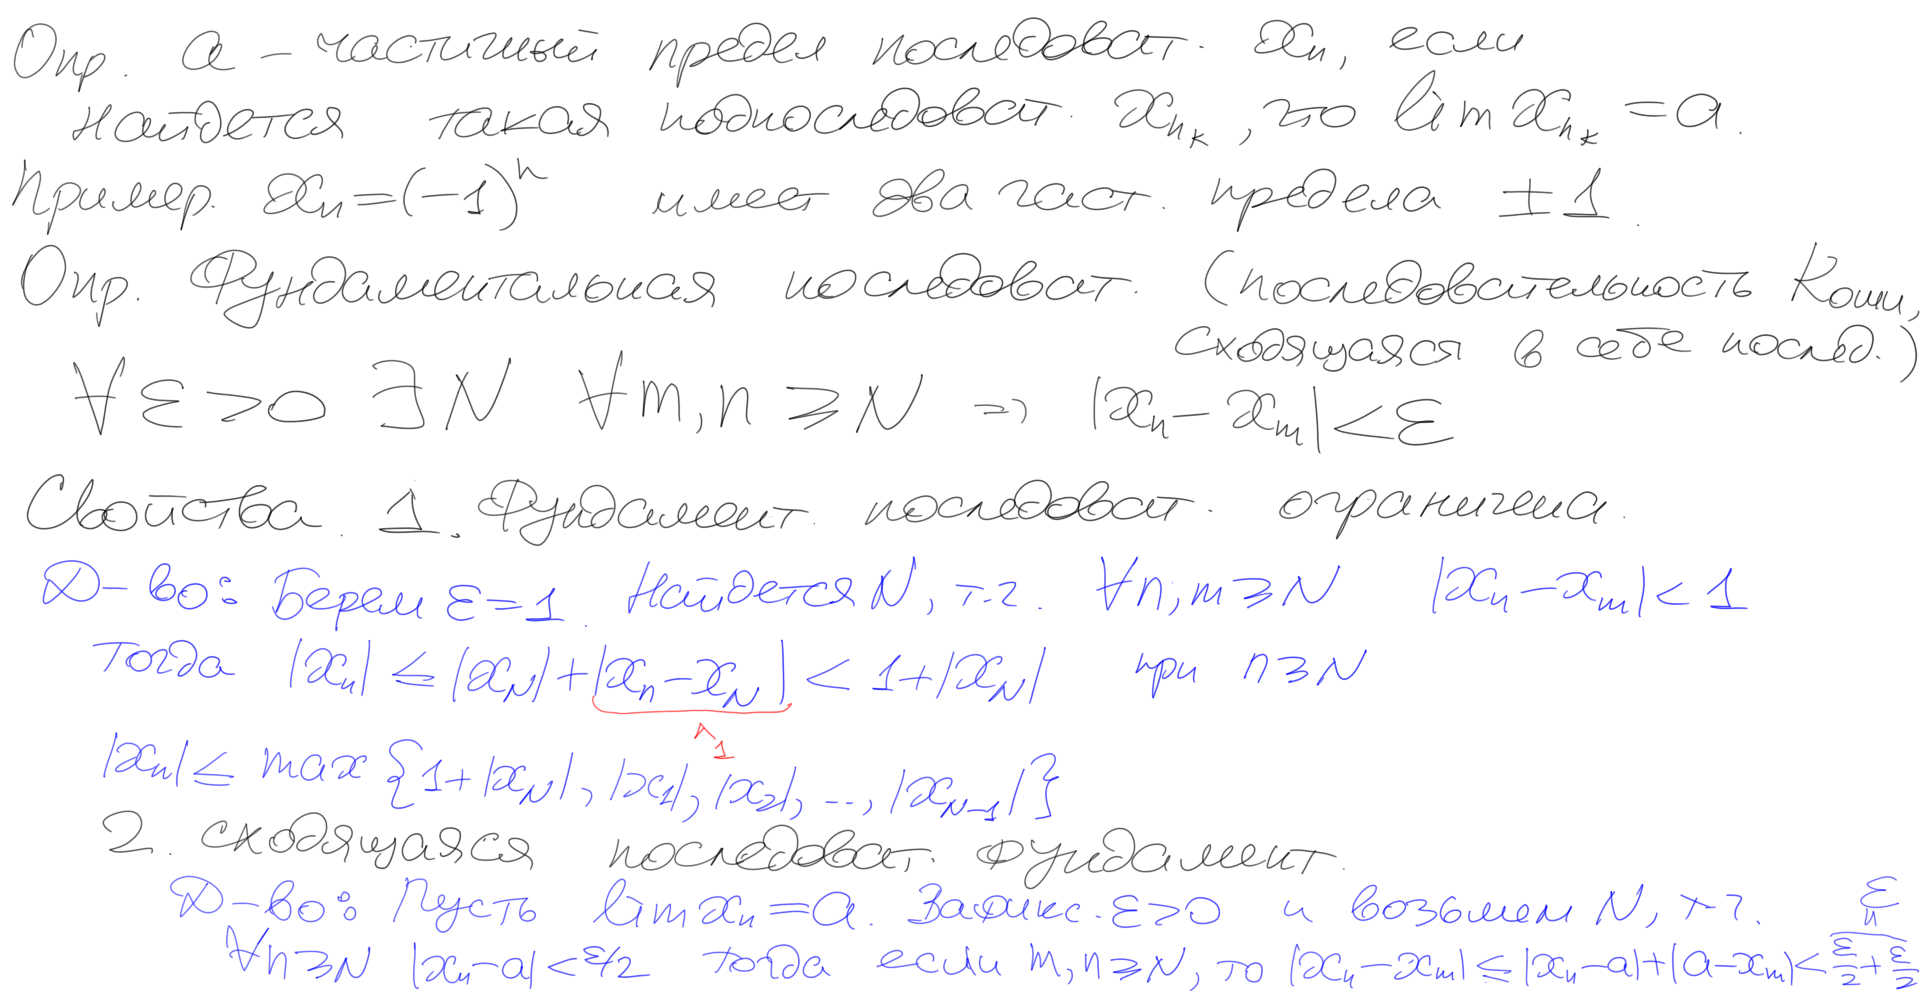 Опр. a – частичный предел последоват. xₙ, если
найдется такая подпоследоват. x_{n_k}, что lim x_{n_k} = a.
Пример. xₙ = (−1)ⁿ имеет два част. предела ±1.
Опр. Фундаментальная последоват. (последовательность Коши,
сходящаяся в себе послед.)
∀ε>0 ∃N ∀m,n ⩾ N ⇒ |xₙ − xₘ| < ε
Свойства. 1. Фундамент. последоват. ограничена.
Д-во: Берем ε=1. Найдется N, т.ч. ∀n,m ⩾ N |xₙ − xₘ| < 1
тогда |xₙ| ≤ |x_N| + |xₙ − x_N| < 1+|x_N| при n ⩾ N
^1
|xₙ| ≤ max {1+|x_N|, |x₁|, |x₂|, ..., |x_{N−1}|}
2. сходящаяся последоват. фундамент.
Д-во: Пусть lim xₙ = a. Зафикс. ε>0 и возьмем N, т.ч.
∀n ⩾ N |xₙ−a| < ε/2 тогда если m,n ⩾ N, то |xₙ − xₘ| ≤ |xₙ−a|+|a−xₘ| < ε/2 + ε/2
ε
॥